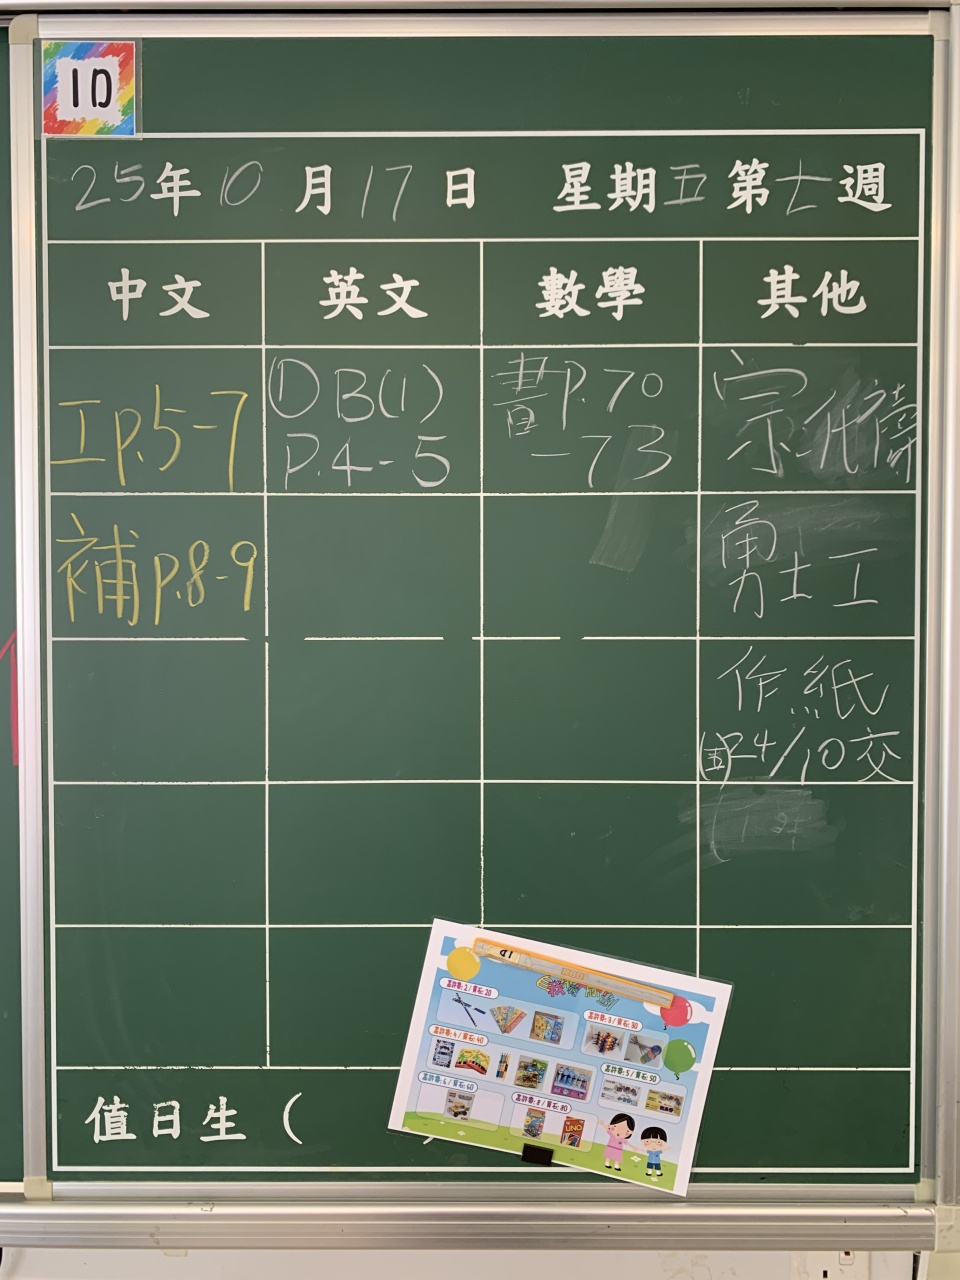 1D
25年10月17日 星期五第七週
中文 英文 數學 其他
工P.5-7
補P.8-9
① B(1)
P.4-5
書P.70
-73
宗
勇士工
作紙
24/10交
值日生(
1D
UNO